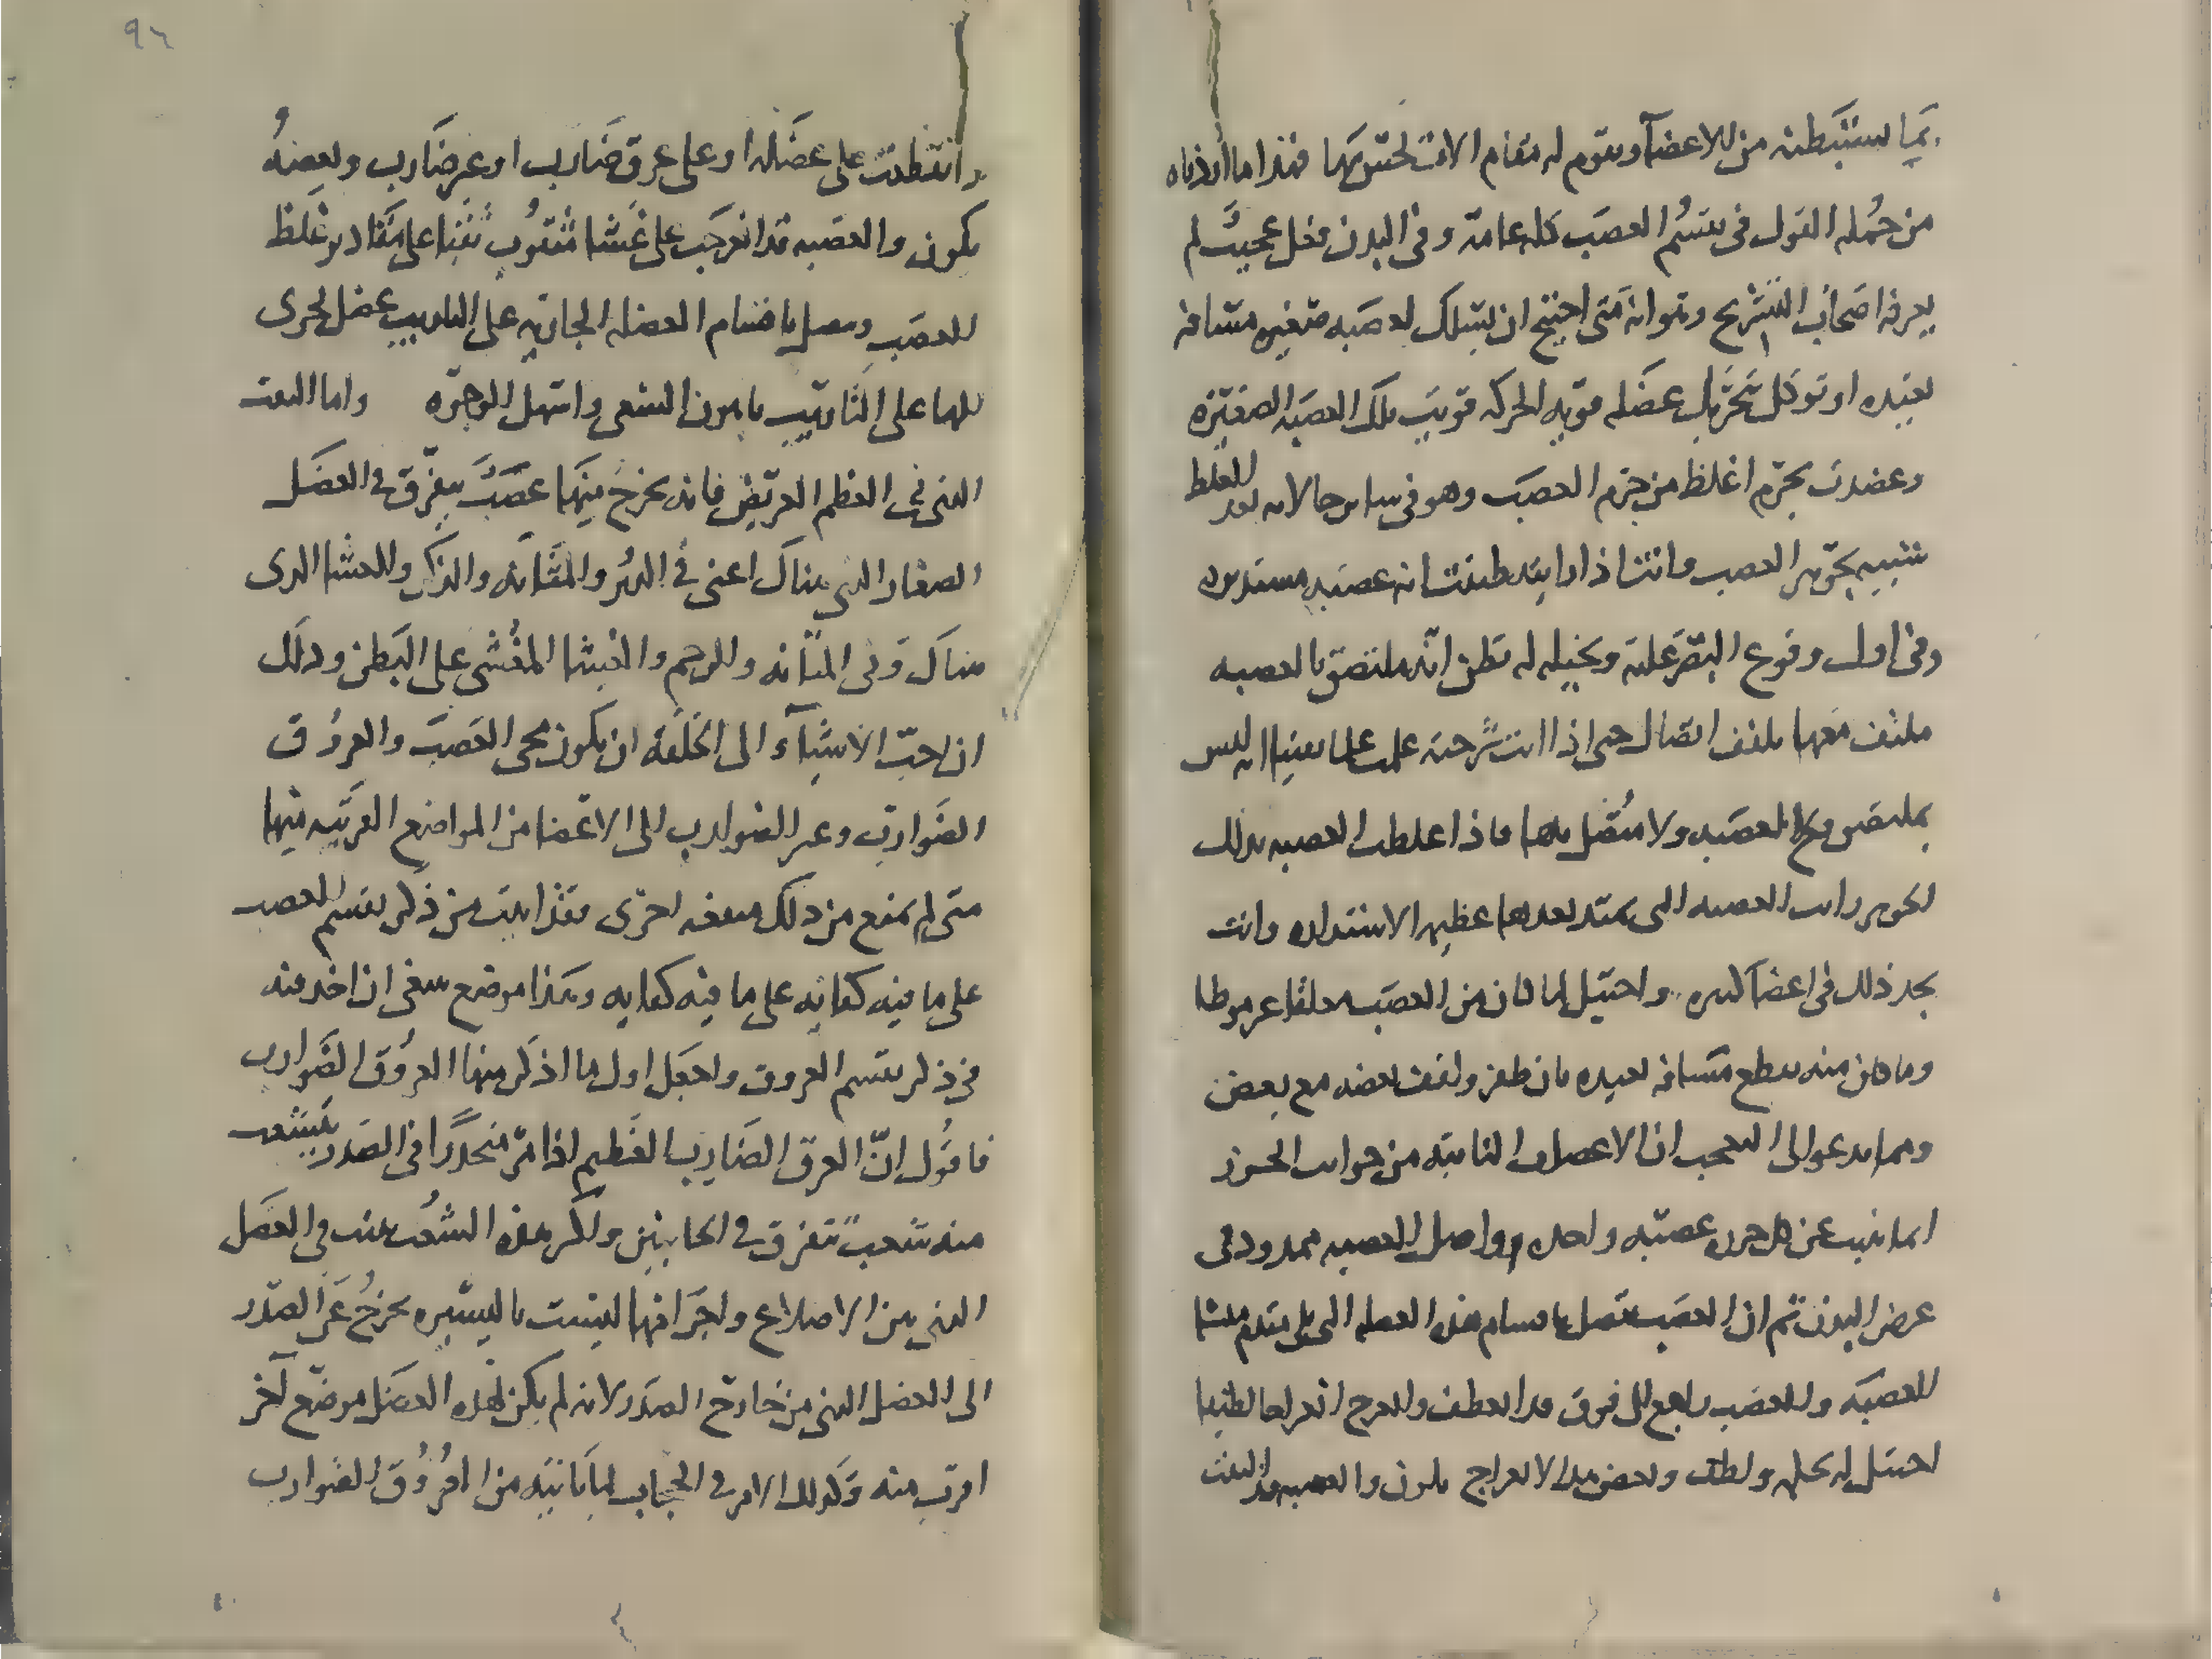 بما يستبطنه من الاعضآ ويقوم له مقام الات لحس بها فهذا ما اردناه
من جُمله القول فى تقسُم العصَب كله عامة وفى البدن فعل عجيبٌ لم
يعرفه اصحاب التشريح وهو انه متى احتيج ان يسلك لعصبه صغيره مسافه
بعيده او توكل بتحريك عضله قويه الحركه قويت تلك العصبه الصغيره
وعضدت بجرم اغلظ من جرم العصب وهو فى ساير حالاته للغلط
شبيه بجوهر العصب وانت اذا رايته ظننت انه عصبه مستديره
وفى اول وقوع البصر عليه وتخيله له تظن انه ملتصق بالعصبه
ملتف معها ملتف اتصال حتى اذا انت شرحته علمت علما يقينا انه ليس
بملتصق بالعصبه ولا متصل بها فاذا غلظت العصبه بذلك
الجوهر رايت العصبه التى تمتد بعدها عظيمه الاستداره وانت
تجد ذلك فى اعضا كثيره واحتيل لما كان من العصب معلقا غير موطا
وما كان منه يقطع مسافه بعيده بان ولفف بعضه مع بعض
ومما يدعو الى التعجب ان الاعصاب النابته من جوانب الخرز
انما نبت عن كل خرزه عصبه واحده واصل العصبه ممدود فى
عرض البدن ثم ان العصب يتصل باقسام هذه العضله التى
للعصبه والعصب راجع الى فوق هذا العطف والعرج انعراجا لطيفا
احتيل له بحيله ولطف وبعض هذا الانعراج يكون والعصبه قد التفت
٩٦
وانعطفت على عضله او على عرق ضارب او غير ضارب وبعضهُ
يكون والعصبه قد انعرجت على غشا مثقوب ثقبا على مقدار غلظ
العصب ويتصل باقسام العضله الجاذبه على التاريب عضل اخرى
على التاريب باهون السعى واسهل الوجوه واما الثقب
التى فى العظم العريض فانه يخرج منها عصبٌ يتفرق فى العضل
الصغار التى هناك اعنى فى الدبُر والمثانه والذكر والغشا الذى
هناك وفى المثانه والرحم والغشا المغشى على البطن وذلك
ان احب الاشيآء الى الخلقه ان يكون مجى العصب والعروق
الضوارب وغير الضوارب الى الاعضا من المواضع القريبه منها
متى لم يمنع من ذلك منفعه اخرى فقد اتيت من ذكر تقسم العصب
على ما فيه كفايه على ما فيه كفايه وهذا موضع ينبغى ان اخذ منه
فى ذكر تقسم العروق واجعل اول ما اذكر منها العروُق الضوارب
فاقول انّ العرق الضارب العظيم اذا مرّ منحدرًا فى الصدر يتشعب
منه شعبٌ تتفرق فى الجانبين واكثر هذه الشعب ينبت فى العضل
التى بين الاضلاع واجزاؤها ليست باليسيره تخرجُ عن الصدر
الى العضل التى من خارج الصدر لانه لم يكن لهذه العضل موضع آخر
اقرب منه وكذلك الامر فى الحجاب لما ياتيه من العروُق الضوارب